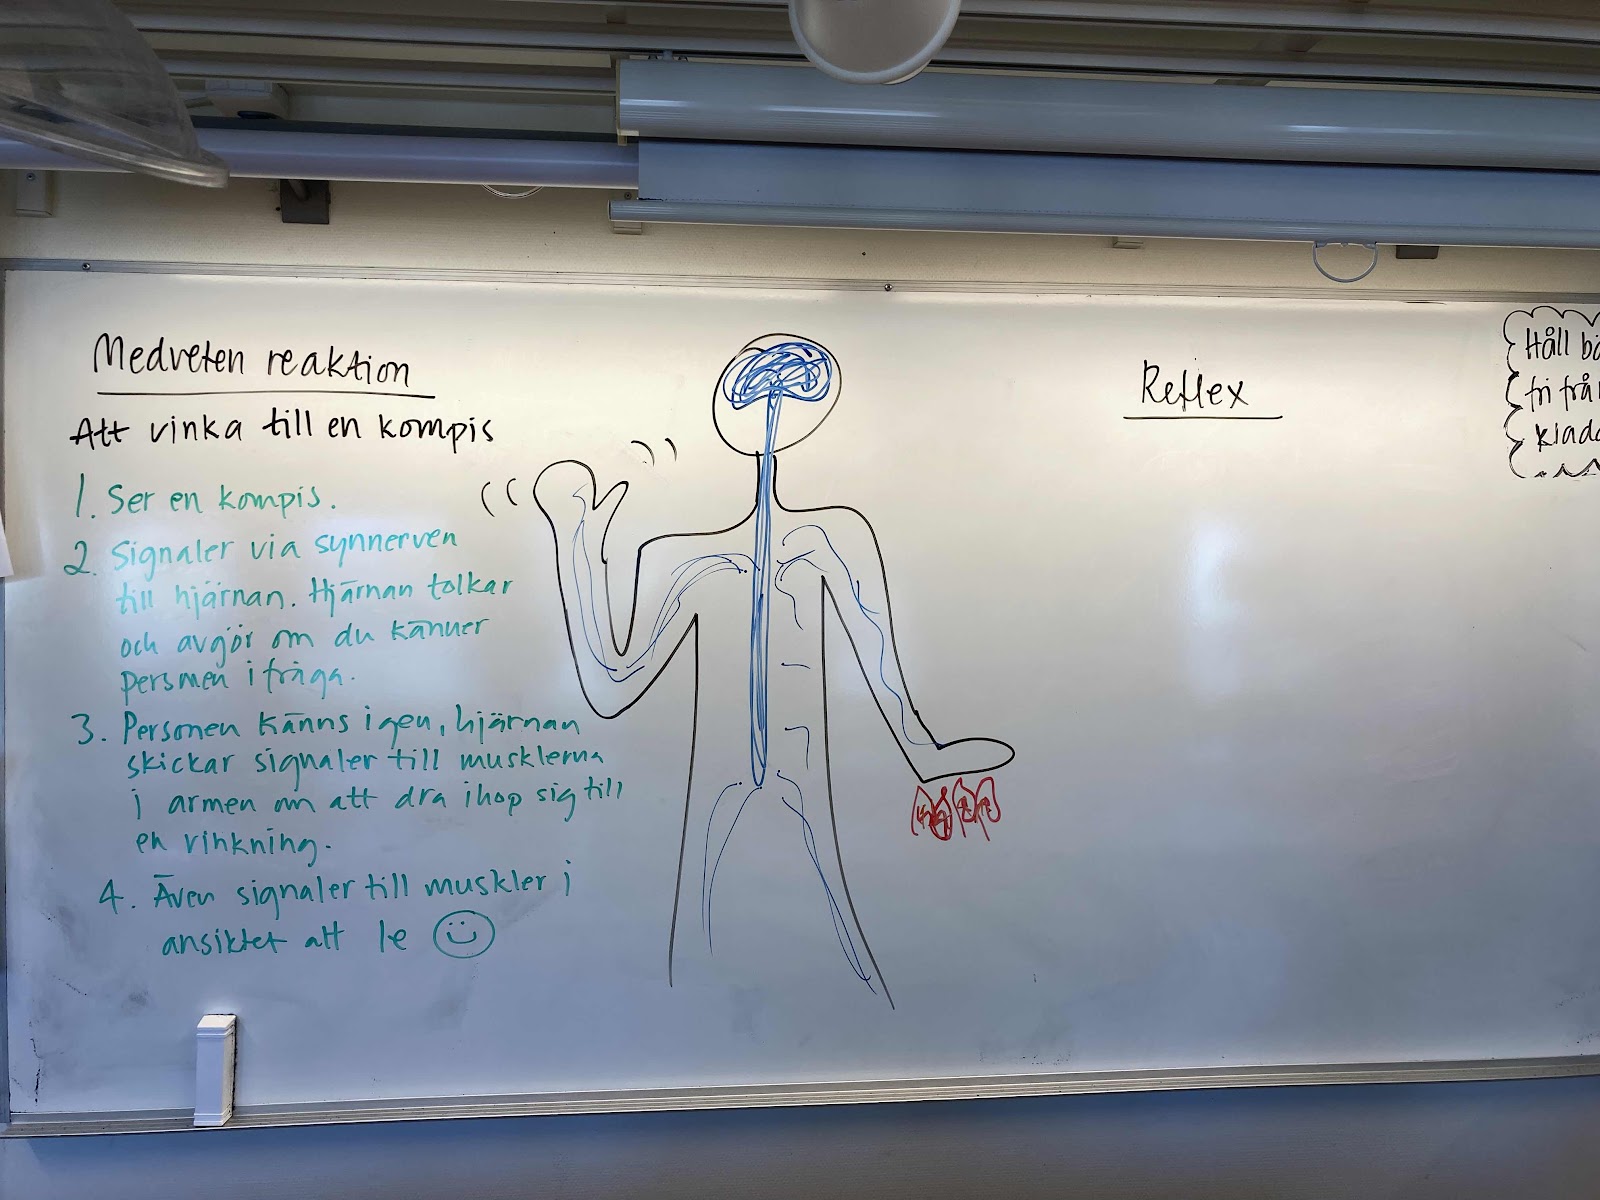 Medveten reaktion
Att vinka till en kompis
1. Ser en kompis.
2. Signaler via synnerven
till hjärnan. Hjärnan tolkar
och avgör om du känner
personen i fråga.
3. Personen känns igen, hjärnan
skickar signaler till musklerna
i armen om att dra ihop sig till
en vinkning.
4. Även signaler till muskler i
ansiktet att le
Reflex
Håll
fri från